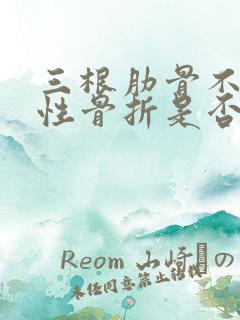 三根肋骨不
性骨折是否
Reom 山崎 の
未任同意禁止转载